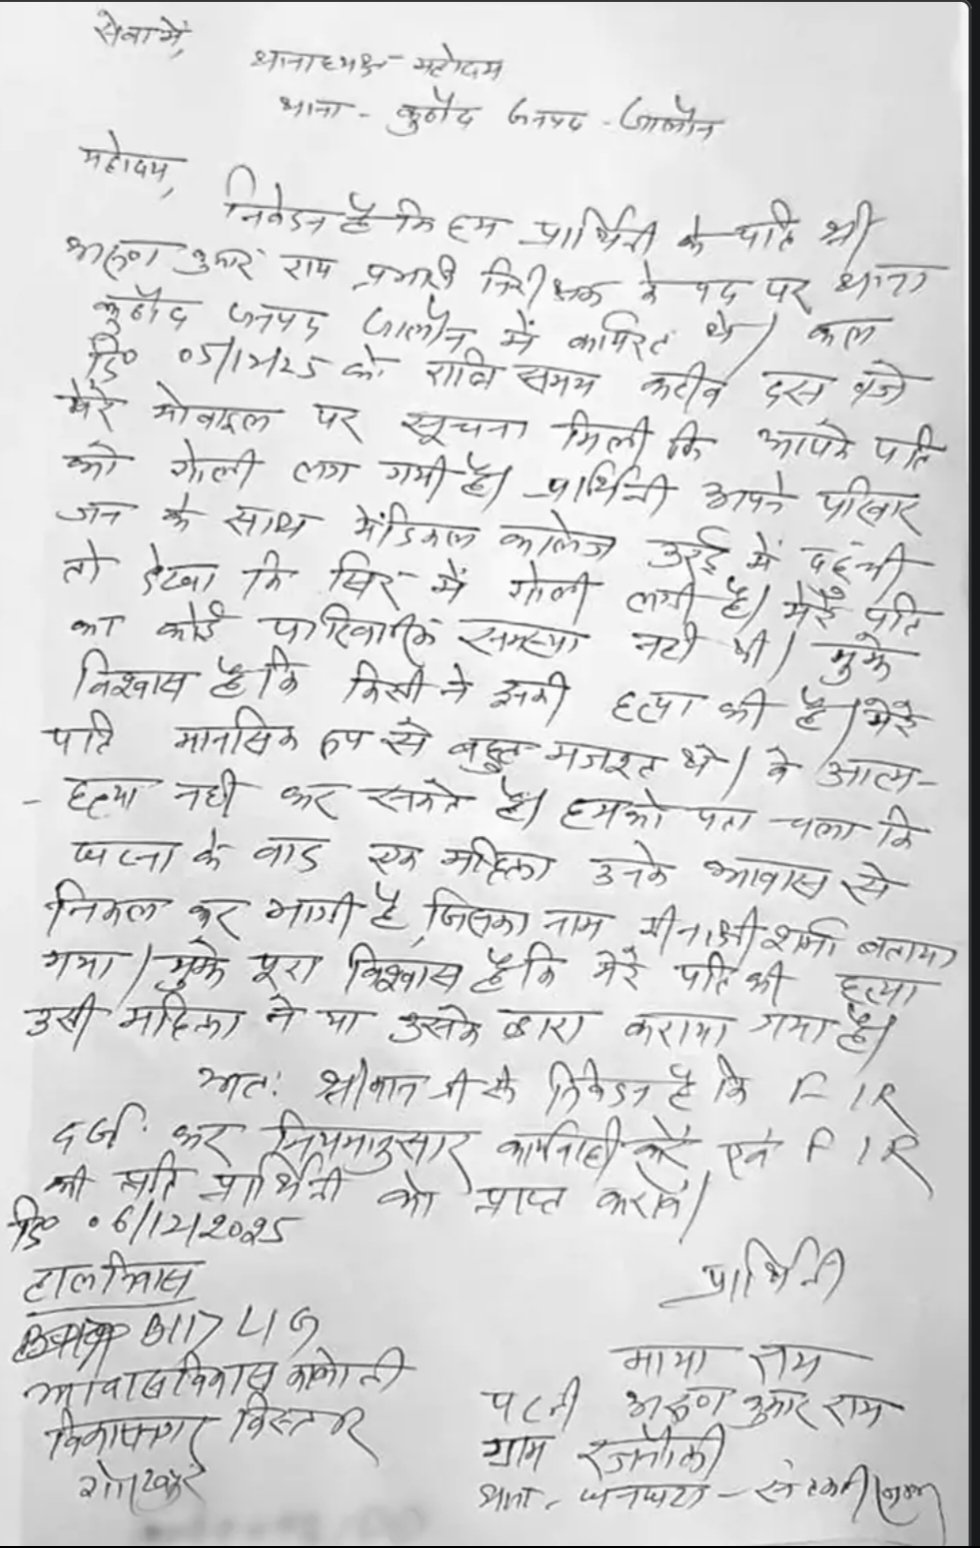 सेवा में,
थानाध्यक्ष महोदय
थाना - कुठौंद जनपद - जालौन
महोदय,
निवेदन है कि हम प्रार्थिनी के पति श्री
अरूण कुमार राय प्रभारी निरीक्षक के पद पर थाना
कुठौंद जनपद जालौन में कार्यरत थे। कल
दि० ०5/12/25 को रात्रि समय करीब दस बजे
मेरे मोबाइल पर सूचना मिली कि आपके पति
को गोली लग गयी है। प्रार्थिनी अपने परिवार
जन के साथ मेडिकल कालेज उरई में पहुंची
तो देखा कि सिर में गोली लगी है। मेरे पति
का कोई पारिवारिक समस्या नही थी। मुझे
विश्वास है कि किसी ने इनकी हत्या की है। मेरे
पति मानसिक रूप से बहुत मजबूत थे। वे आत्म-
- हत्या नही कर सकते है। हमको पता चला कि
घटना के बाद एक महिला उनके आवास से
निकल कर भागी है, जिसका नाम मीनाक्षी शर्मा बताया
गया। मुझे पूरा विश्वास है कि मेरे पति की हत्या
उसी महिला ने या उसके द्वारा कराया गया है।
अतः श्रीमान जी से निवेदन है कि FIR
दर्ज कर नियमानुसार कार्यवाही करें एवं FIR
की प्रति प्रार्थिनी को प्राप्त करावें।
दि० ०6/12/2025
हाल निवास
B117 LIG
आवास विकास कालोनी
विकासनगर विस्तार
गोरखपुर
प्रार्थिनी
माया राय
पत्नी अरूण कुमार राय
ग्राम रजनौली
थाना - धनघटा - संतकबीरनगर